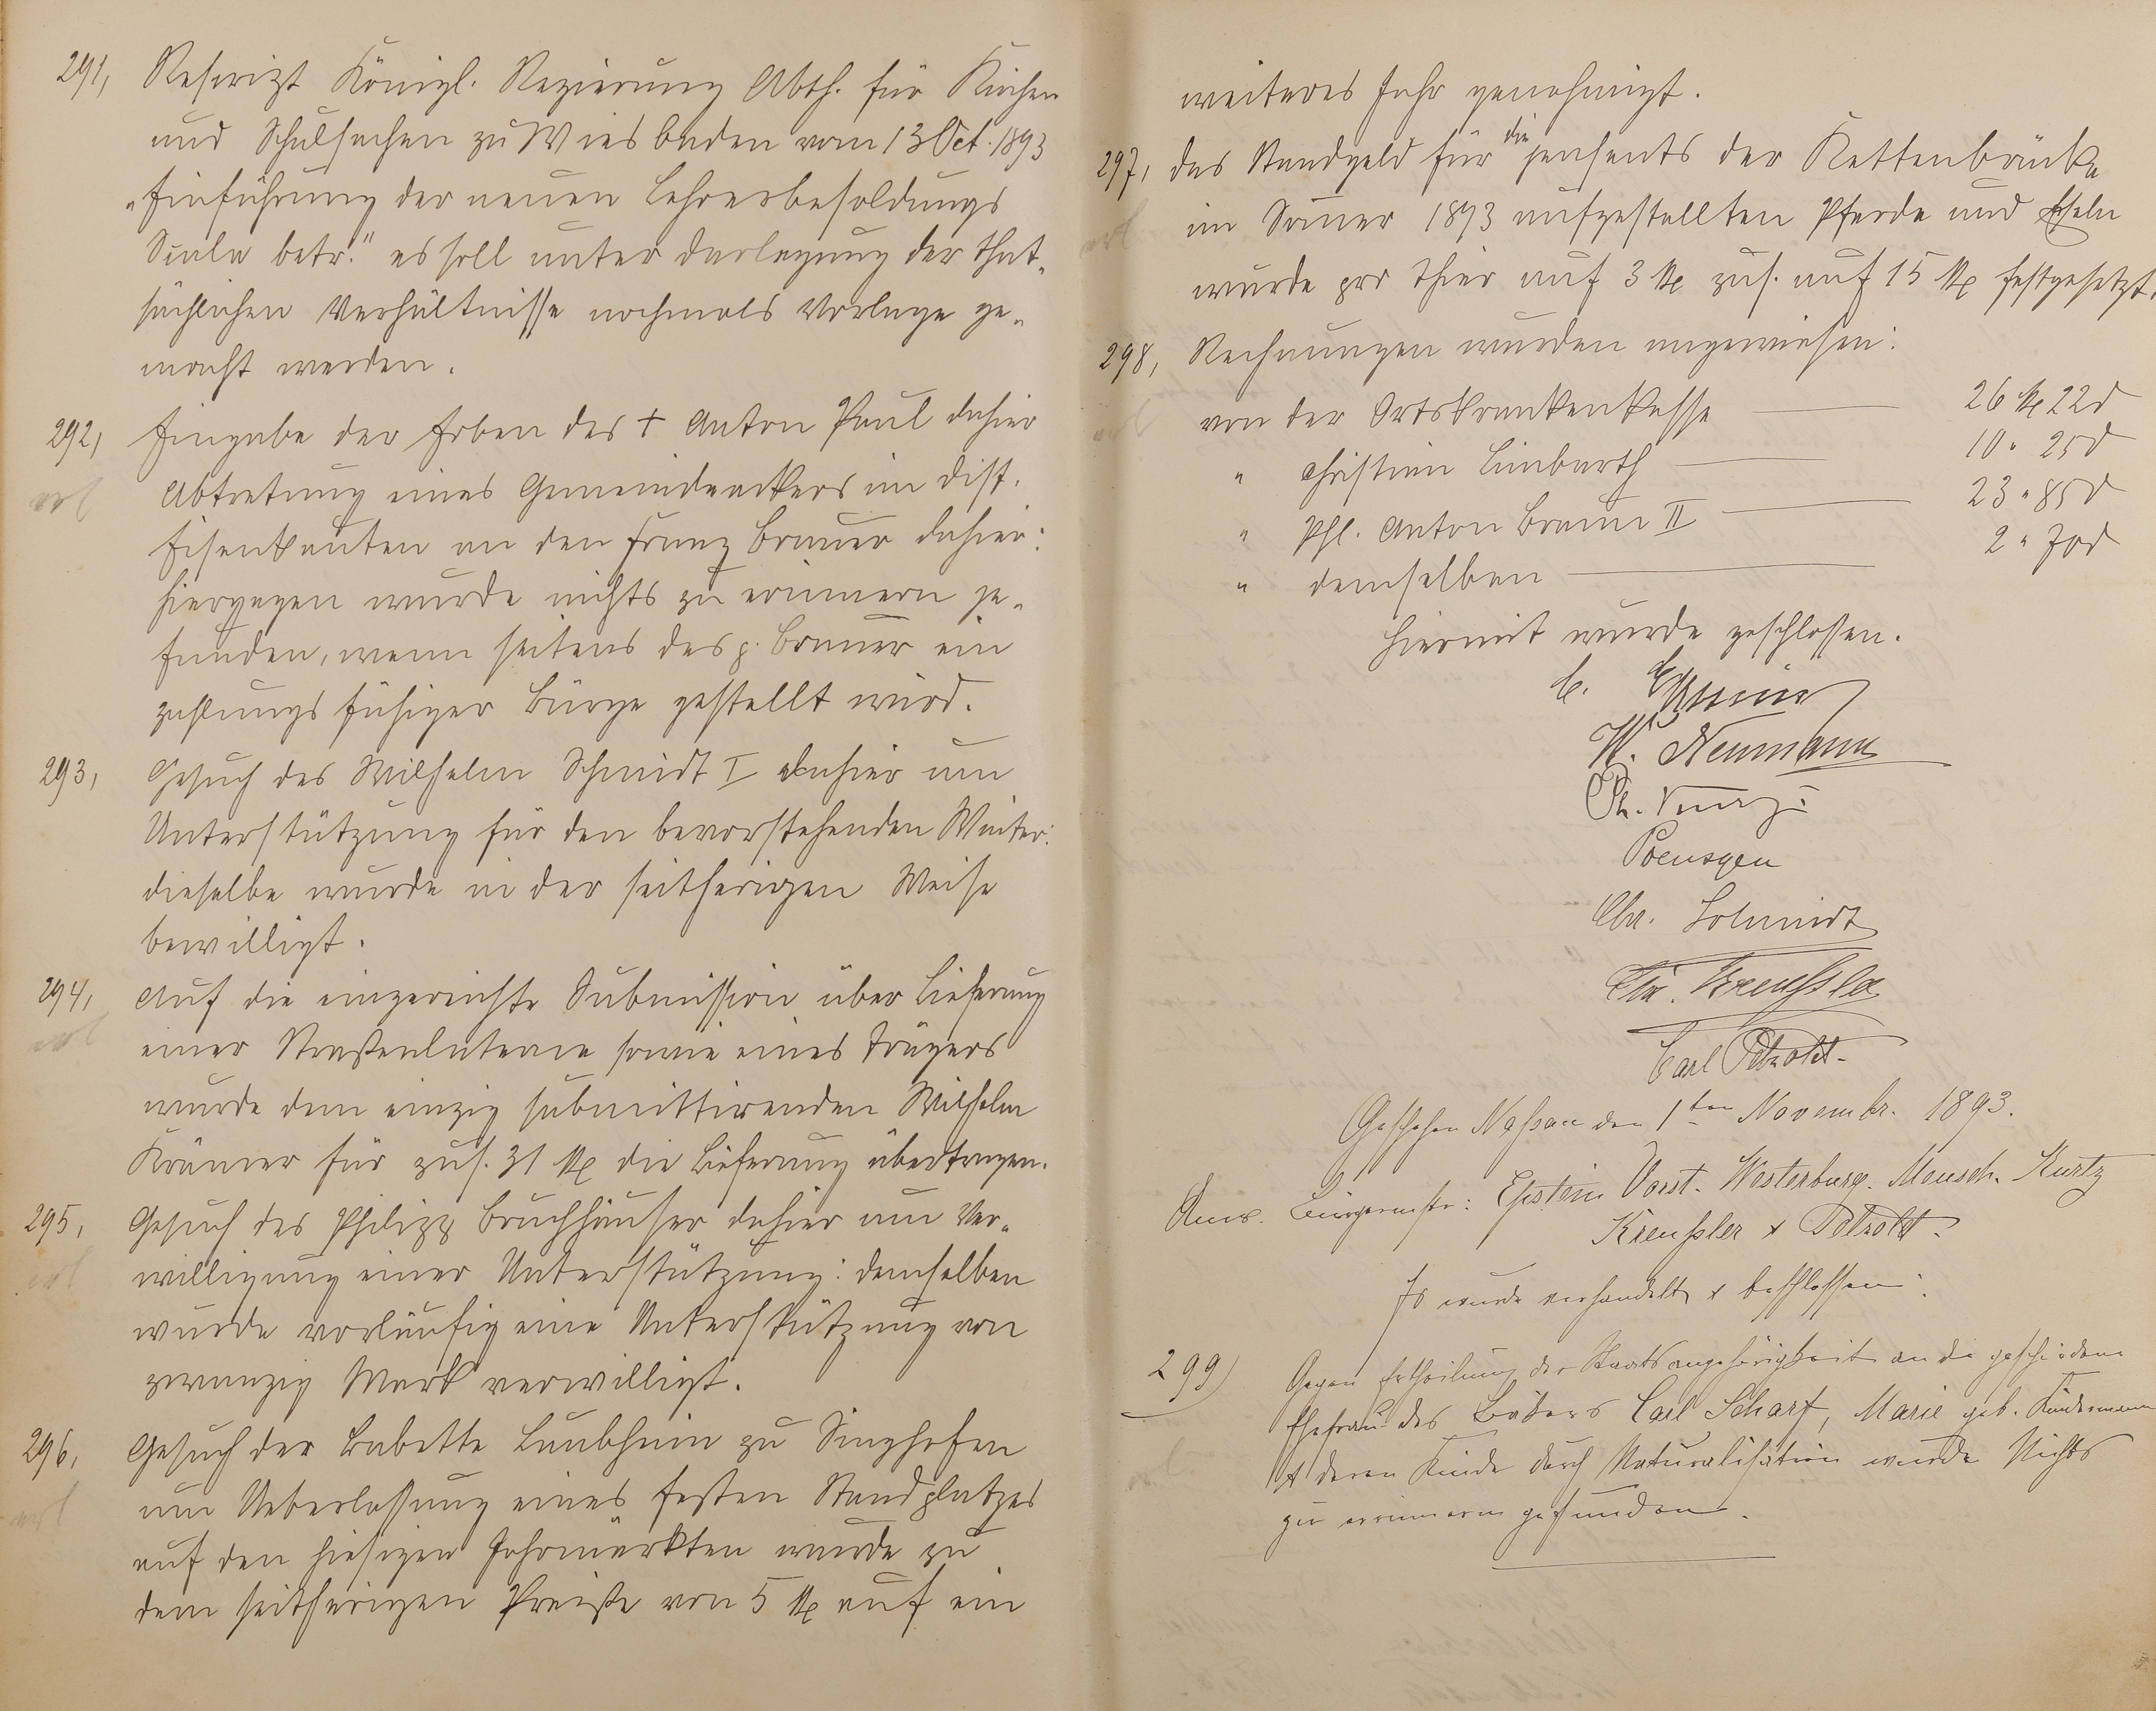 291, Rescript Königl. Regierung Abth. für Kirchen
und Schulsachen zu Wiesbaden vom 13 Oct. 1893
"Einführung der neuen Lehrerbesoldungs
Scala betr." es soll unter Darlegung der that-
sächlichen Verhältnisse nochmals Vorlage ge-
macht werden.
292, Eingabe der Erben des + Anton Paul dahier
erl
Abtretung eines Gemeindeackers im Dist.
Eisenkauten an den Franz Bräuer dahier:
hiergegen wurde nichts zu erinnern ge-
funden, wenn seitens des p. Bräuer ein
zahlungsfähiger Bürge gestellt wird.
293, Gesuch des Wilhelm Schmidt I dahier um
Unterstützung für den bevorstehenden Winter:
dieselbe wurde in der seitherigen Weise
bewilligt.
294, Auf die eingereichte Submission über Lieferung
erl
einer Straßenlaterne sowie eines Trägers
wurde dem einzig submittirenden Wilhelm
Krämer für zus. 31 M die Lieferung übertragen.
295, Gesuch des Philipp Bruchhäuser dahier um Ver-
erl
willigung einer Unterstützung: demselben
wurde vorläufig eine Unterstützung von
zwanzig Mark verwilligt.
296, Gesuch der Babette Laubheim zu Singhofen
erl
um Ueberlassung eines festen Standplatzes
auf den hiesigen Jahrmärkten wurde zu
dem seitherigen Preiße von 5 M auf ein
weiteres Jahr genehmigt.
297, Das Standgeld für die jenseits der Kettenbrücke
erl
im Somer 1893 aufgestellten Pferde und Eseln
wurde pro Thier auf 3 M zus. auf 15 M festgesetzt.
298, Rechnungen wurden angewiesen:
erl
von der Ortskrankenkasse 26 M 22 d
" Christian Limbarth 10 " 25 d
" Phl. Anton Braun II 23 " 85 d
" demselben 2 " 70 d
Hiermit wurde geschlossen.
W. Neumann
Poensgen
Chr. Schmidt
Chr. Kreußler
Carl Petzold.
Geschehen Naßau den 1ten Novembr. 1893.
Anw. Bürgermstr: Epstein Vorst. Westerburg. Mensch. Kurtz
Kreußler & Petzold.
Es wurde verhandelt & beschlossen:
299) Gegen Ertheilung der Staatsangehörigkeit an die geschiedene
Ehefrau des Bäkers Carl Scharf, Marie geb. Kindermann
erl
& deren Kinde durch Naturalisation wurde Nichts
zu erinnern gefunden.